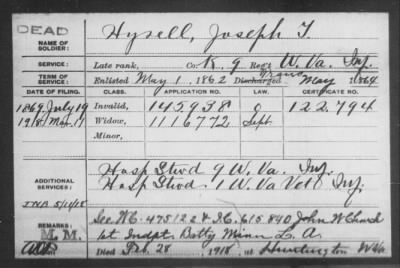 DEAD
NAME OF SOLDIER: Hysell, Joseph T.
SERVICE: Late rank, Co. K, 9 Reg't W. Va. Inf.
TERM OF SERVICE: Enlisted May 1, 1862 Discharged May, 1864
DATE OF FILING. CLASS. APPLICATION NO. LAW. CERTIFICATE NO.
1869 July 19 Invalid, 145938 122.794
1918 Mar. 17 Widow, 1116772 Sept
Minor,
ADDITIONAL SERVICES:
Hosp Stwd 9 W. Va. Inf.
Hosp Stwd. 1 W. Va Vet Inf.
5/11/18
REMARKS:
See W.C. 475122 & I.C. 615.840 John W Church
M. M. 1st Indpt Batty Minn L. A.
Died Feb. 28, 1918, at Huntington W Va